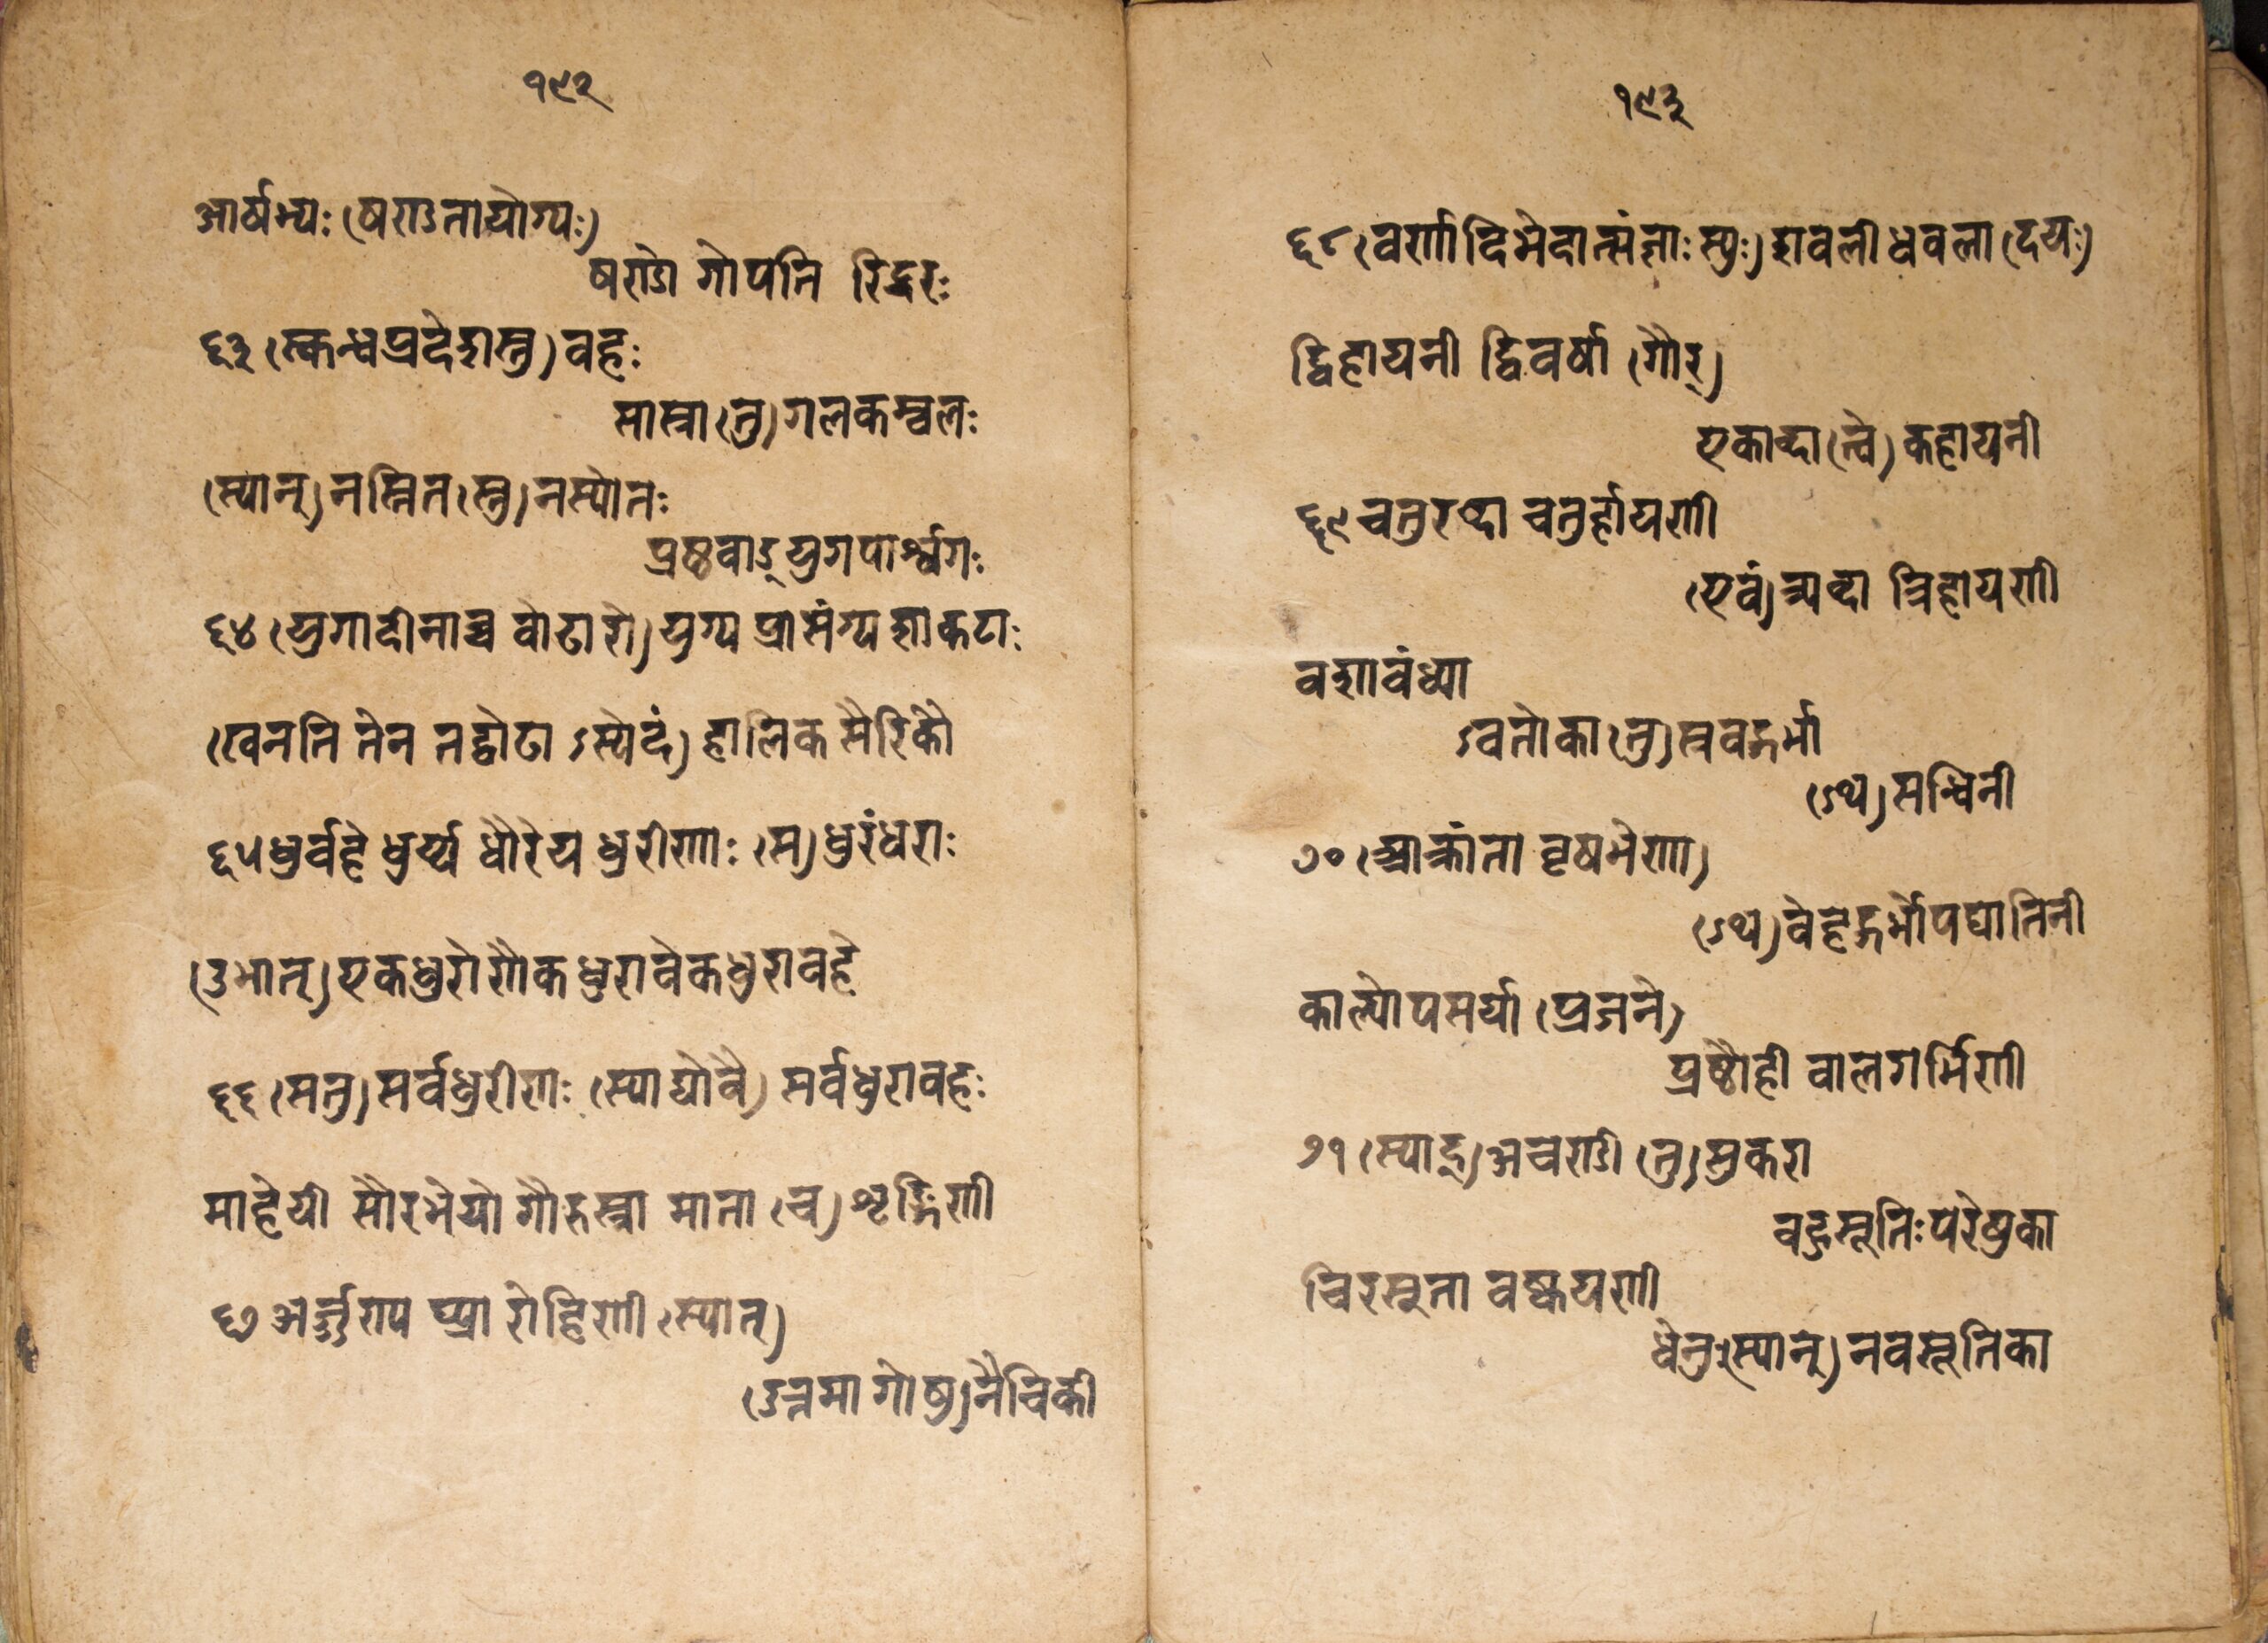 १९२
आर्षभ्यः (षण्डतायोग्यः)
षण्डो गोपति रिट्चरः
६३ (स्कन्धप्रदेशस्तु) वहः
सास्ना (तु) गलकम्बलः
(स्यान्) नस्तित (स्तु) नस्योतः
प्रष्ठवाड् युगपार्श्वगः
६४ (युगादीनाञ्च वोढारो) युग्य प्रासंग्य शाकटाः
(खनति तेन तद्वोढा ऽस्येदं) हालिक सैरिकौ
६५ धुर्वहे धुर्य्य धौरेय धुरीणाः (स) धुरंधराः
(उभात्) एकधुरीणैकधुरावेकधुरावहे
६६ (सतु) सर्वधुरीणः (स्याद्योवै) सर्वधुरावहः
माहेयी सौरभेयी गौरुस्रा माता (च) शृङ्गिणी
६७ अर्ज्जुण्य घ्न्या रोहिणी (स्यात्)
(उत्तमा गोषु) नैचिकी
१९३
६८ (वर्णादिभेदात्संज्ञाः स्युः) शवलीधवला (दयः)
द्विहायनी द्विवर्षा (गौर्)
एकाब्दा (त्वे) कहायनी
६९ चतुरब्दा चतुर्हायणी
(एवं) त्र्यब्दा त्रिहायणी
वशावंध्या
ऽवतोका (तु) स्रवद्गर्भा
(ऽथ) सन्धिनी
७० (आक्रांता वृषभेणा)
(ऽथ) वेहद्गर्भोपघातिनी
काल्योपसर्या (प्रजने)
प्रष्ठौही वालगर्भिणी
७१ (स्याद्) अचण्डी (तु) सुकरा
वहुसूतिः परेष्टुका
चिरसूता वष्कयणी
धेनुः (स्यान्) नवसूतिका